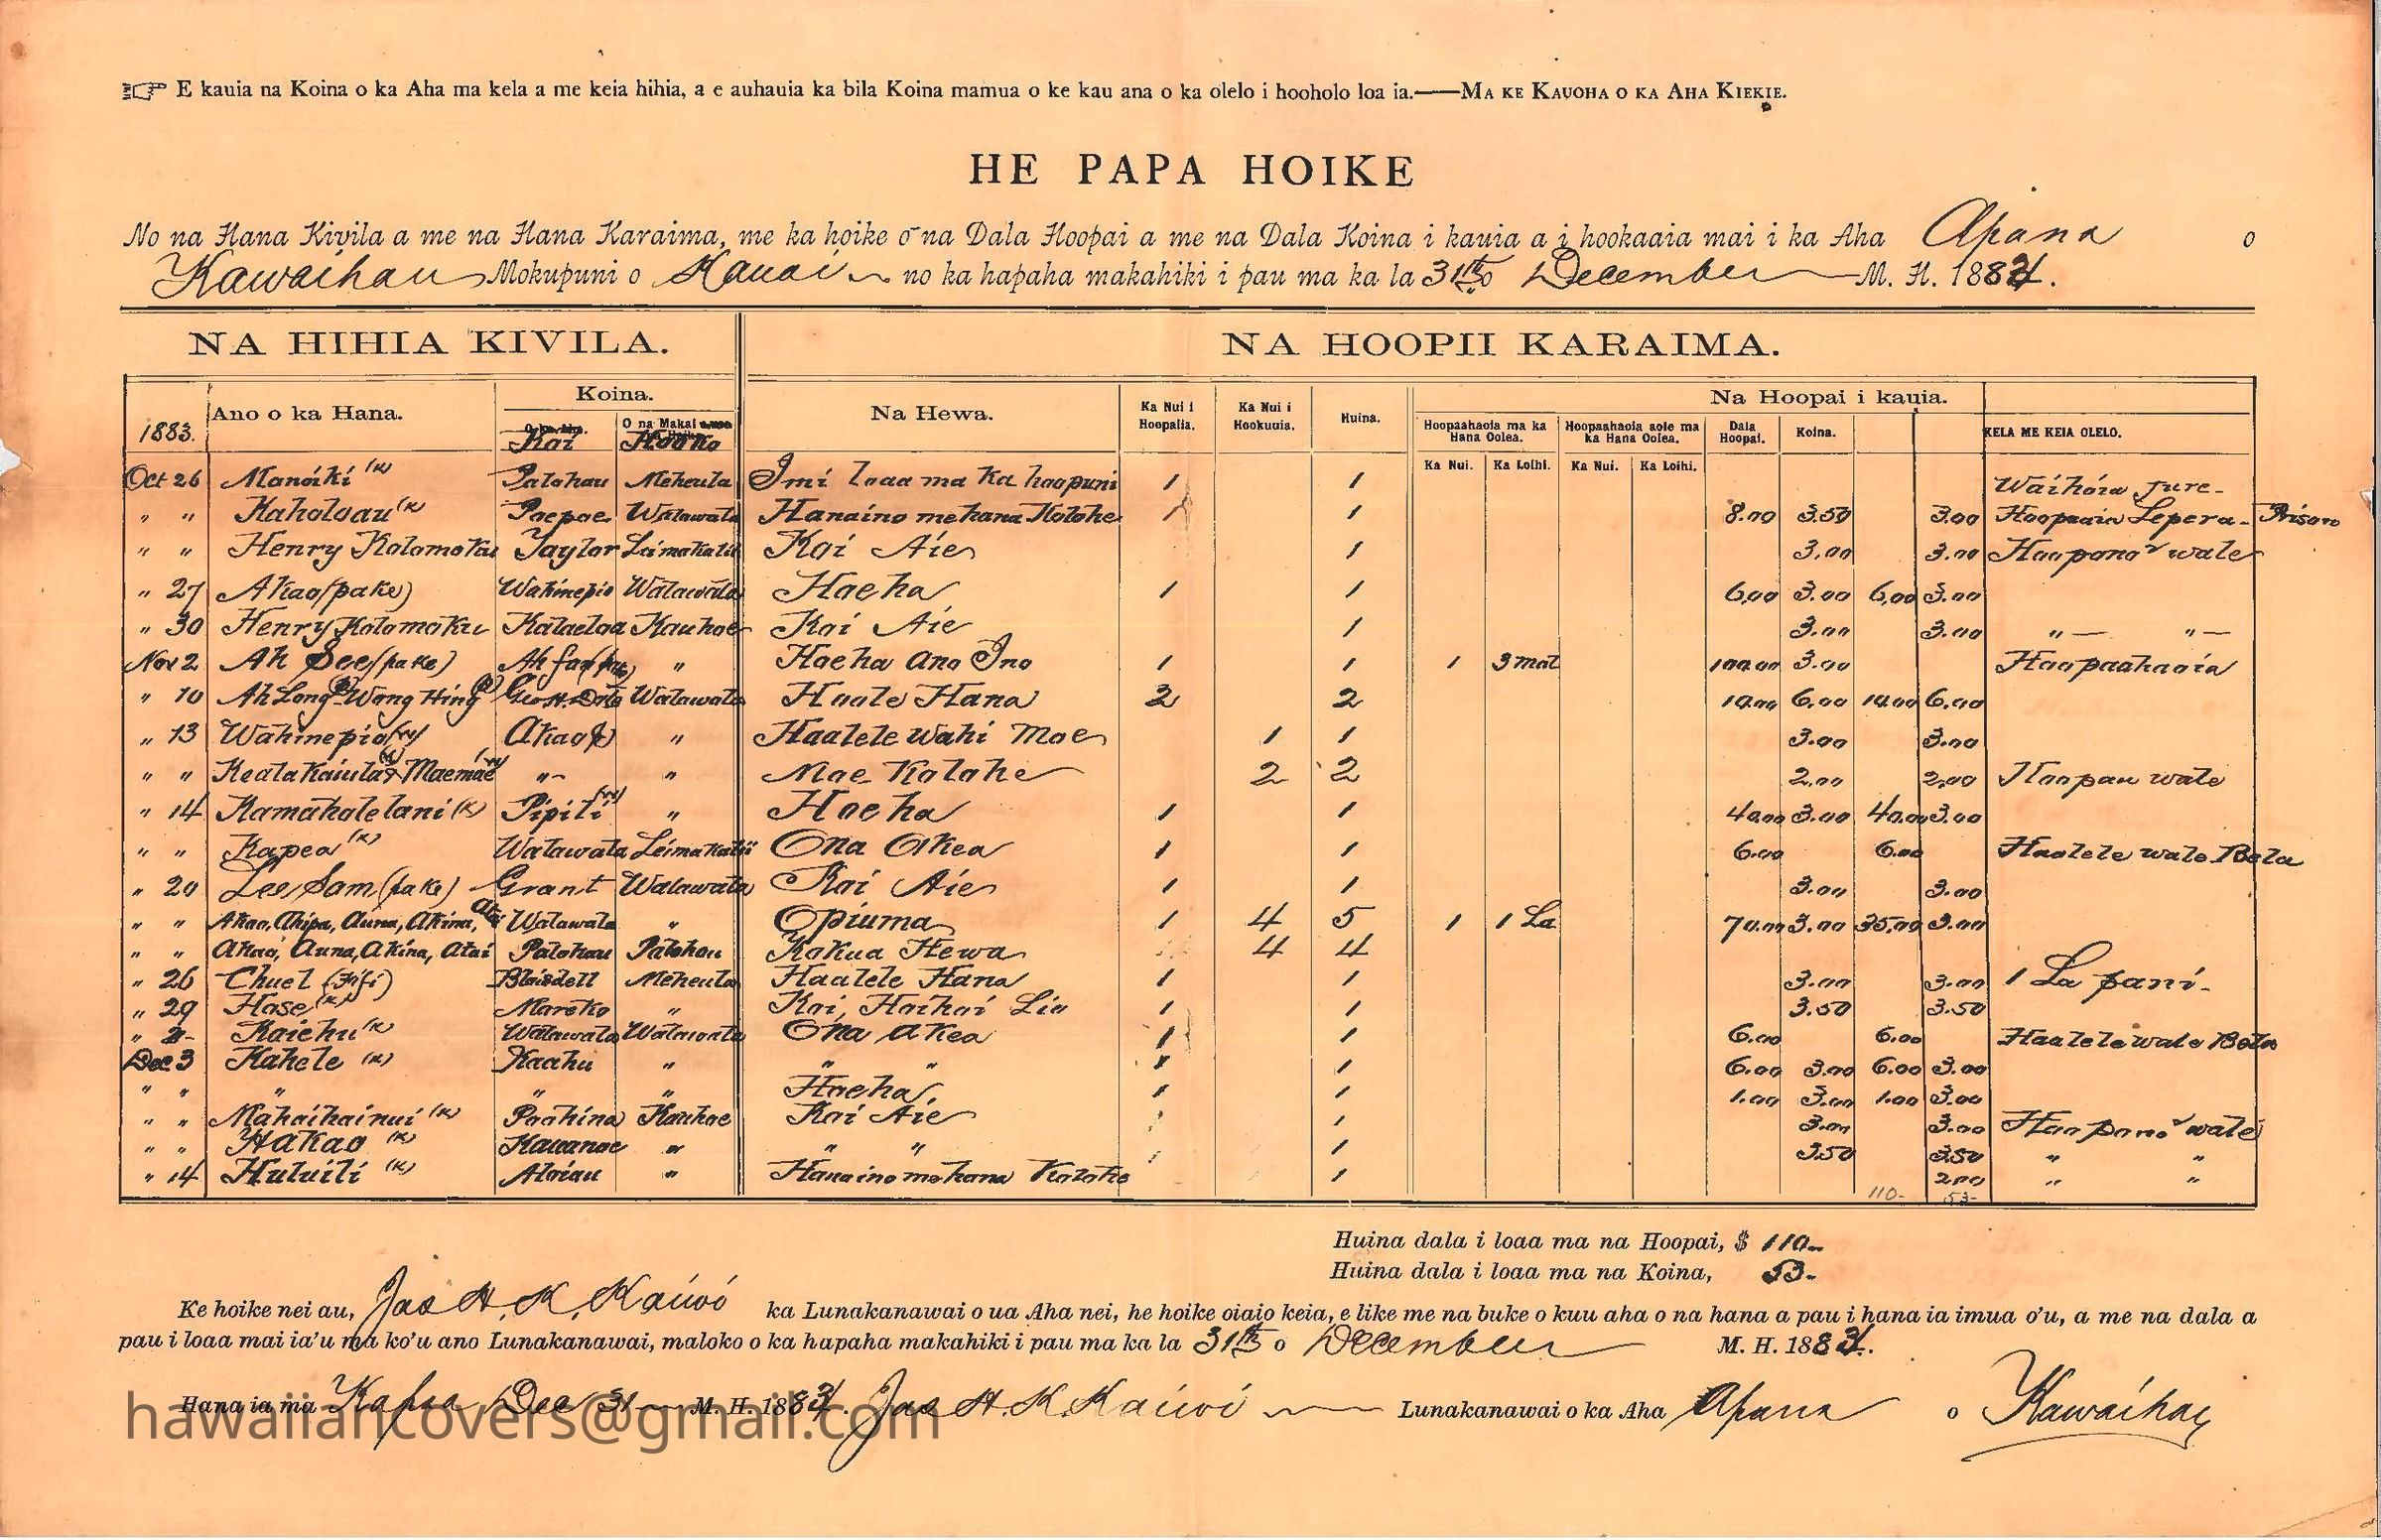 E kauia na Koina o ka Aha ma kela a me keia hihia, a e auhauia ka bila Koina mamua o ke kau ana o ka olelo i hooholo loa ia.——MA KE KAUOHA O KA AHA KIEKIE.
HE PAPA HOIKE
No na Hana Kivila a me na Hana Karaima, me ka hoike o na Dala Hoopai a me na Dala Koina i kauia a i hookaaia mai i ka Aha Apana o
Kawaihau Mokupuni o Kauai no ka hapaha makahiki i pau ma ka la 31th o December M. H. 1883.
NA HIHIA KIVILA. NA HOOPII KARAIMA.
1883. Ano o ka Hana. Koina. Na Hewa. Ka Nui i Hoopaiia. Ka Nui i Hookuuia. Huina. Na Hoopai i kauia.
O na Makai Hoopaahaoia ma ka Hana Oolea. Hoopaahaoia aole ma ka Hana Oolea. Dala Hoopai. Koina. KELA ME KEIA OLELO.
Koi Hooko
Ka Nui. Ka Loihi. Ka Nui. Ka Loihi.
Oct 26 Manoiki (k) Palohau Meheula Imi loaa ma ka hoopuni 1 1
" " Kaholoau (k) Paepae Walawala Hanaino me hana Kolohe 1 1 8.00 3.50 3.00 Hoopaaia Lepera - Prison
" " Henry Kolomoku Taylor Leimakalii Kai Aie 1 3.00 3.00 Hoopono wale
" 27 Akao (pake) Wahinepio Walawala Haeha 1 1 6.00 3.00 6.00 3.00
" 30 Henry Kolomoku Kalaeloa Kauhae Kai Aie 1 3.00 3.00 " — " —
Nov 2 Ah See (pake) " Haeha Ano Ino 1 1 1 3 mal 100.00 3.00 Hoopaahaoia
" 10 Ah Long Wong Hing Walawala Haale Hana 2 2 10.00 6.00 10.00 6.00
" 13 Wahinepio (w) Akao " Haalele Wahi Moe 1 1 3.00 3.00
" " Kealakaiula & Maemae " " Moe Kolohe 2 2 2.00 2.00 Hoopau wale
" 14 Kamahalelani (k) Pipili (w) " Haeha 1 1 40.00 3.00 40.00 3.00
" " Kapea (k) Walawala Leimakalii Ona Akea 1 1 6.00 6.00 Haalele wale Bela
" 20 Lee Sam (pake) Grant Walawala Kai Aie 1 1 3.00 3.00
" " Akao, Ahipa, Auna, Akina, Atai Walawala " Opiuma 1 4 5 1 1 La 70.00 3.00 35.00 3.00
" " Akao, Auna, Akina, Atai Palohau Palohau Kokua Hewa 4 4
" 26 Chuel (Fifi) Blaisdell Meheula Haalele Hana 1 1 3.00 3.00 1 La pani -
" 29 Hose (k) Mareko " Kai, Haihai Lio 1 1 3.50 3.50
" " Kaiehu (k) Walawala Walawala Ona Akea 1 1 6.00 6.00 Haalele wale Bela
Dec 3 Kahele (k) Kaahu " " " 1 1 6.00 3.00 6.00 3.00
" " " " " Haeha, 1 1 1.00 3.00 1.00 3.00
" " Mahaihainui (k) Paahina Kauhae Kai Aie 1 3.00 3.00 Hoopono wale
" " Hakao (k) Kawanae " " " 1 3.50 3.50 " "
" 14 Huluili (k) Alaiau " Hanaino me hana Kolohe 1 2.00 " "
110- 53-
Huina dala i loaa ma na Hoopai, $ 110-
Huina dala i loaa ma na Koina, 53-
Ke hoike nei au, Jas H. K. Kaiwi ka Lunakanawai o ua Aha nei, he hoike oiaio keia, e like me na buke o kuu aha o na hana a pau i hana ia imua o'u, a me na dala a
pau i loaa mai ia'u ma ko'u ano Lunakanawai, maloko o ka hapaha makahiki i pau ma ka la 31th o December M. H. 1883.
Hana ia ma Kapaa Dec 31 M. H. 1883. Jas H. K. Kaiwi Lunakanawai o ka Aha Apana o Kawaihau
hawaiiancovers@gmail.com